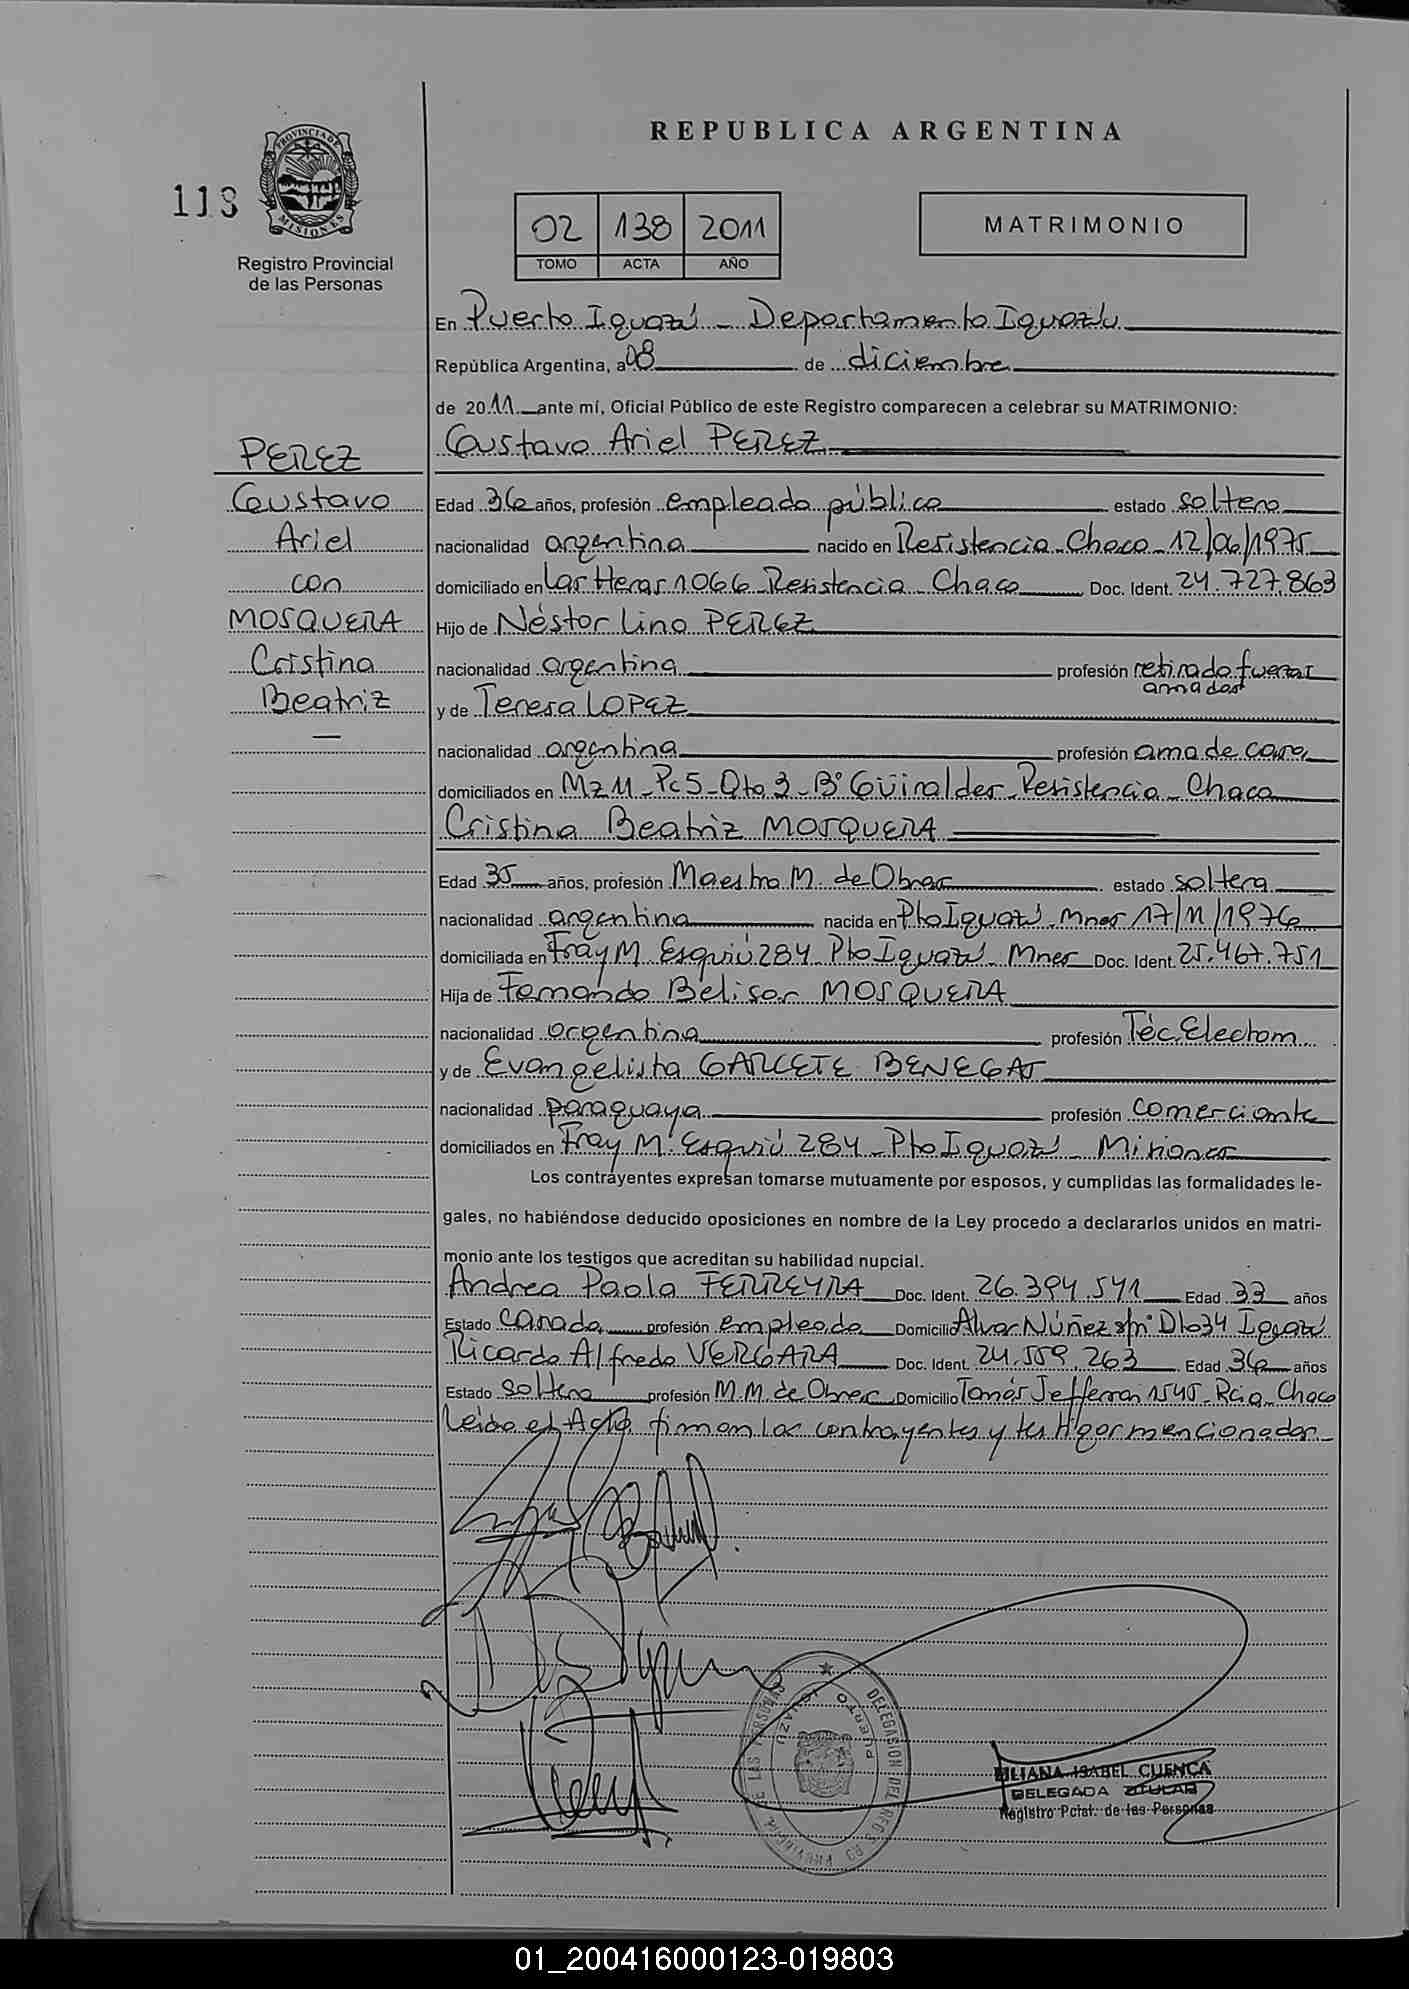 REPUBLICA ARGENTINA
PROVINCIA DE MISIONES
118
Registro Provincial
de las Personas
02 138 2011
TOMO ACTA AÑO
MATRIMONIO
En Puerto Iguazú - Departamento Iguazú
República Argentina, a 08 de diciembre
de 2011 ante mí, Oficial Público de este Registro comparecen a celebrar su MATRIMONIO:
PEREZ
Gustavo
Ariel
con
MOSQUERA
Cristina
Beatriz
Gustavo Ariel PEREZ
Edad 36 años, profesión empleado público estado soltero
nacionalidad argentina nacido en Resistencia - Chaco - 12/06/1975
domiciliado en Las Heras 1066 - Resistencia - Chaco Doc. Ident. 24.727.863
Hijo de Néstor Lino PEREZ
nacionalidad argentina profesión retirado fuerzas
armadas
y de Teresa LOPEZ
nacionalidad argentina profesión ama de casa
domiciliados en Mz 11 - Pc 5 - Qta 3 - B° Güiraldes - Resistencia - Chaco
Cristina Beatriz MOSQUERA
Edad 35 años, profesión Maestro M. de Obras estado soltera
nacionalidad argentina nacida en Pto Iguazú - Mnes 17/11/1976
domiciliada en Fray M. Esquiú 284 - Pto Iguazú - Mnes Doc. Ident. 25.467.751
Hija de Fernando Belisar MOSQUERA
nacionalidad argentina profesión Téc. Electrom.
y de Evangelista GARCETE BENEGAS
nacionalidad paraguaya profesión comerciante
domiciliados en Fray M. Esquiú 284 - Pto Iguazú - Misiones
Los contrayentes expresan tomarse mutuamente por esposos, y cumplidas las formalidades le-
gales, no habiéndose deducido oposiciones en nombre de la Ley procedo a declararlos unidos en matri-
monio ante los testigos que acreditan su habilidad nupcial.
Andrea Paola FERREYRA Doc. Ident. 26.394.541 Edad 33 años
Estado casada profesión empleada Domicilio Alvar Núñez s/n° Dto 34 Iguazú
Ricardo Alfredo VERGARA Doc. Ident. 24.559.263 Edad 36 años
Estado soltero profesión M.M. de Obras Domicilio Tomás Jefferson 1545 - Rcia - Chaco
Leída el Acta firman los contrayentes y testigos mencionados
DELEGACION DEL REGISTRO PROVINCIAL DE LAS PERSONAS
PUERTO IGUAZU
LILIANA ISABEL CUENCA
DELEGADA TITULAR
Registro Pcial. de las Personas
01_200416000123-019803